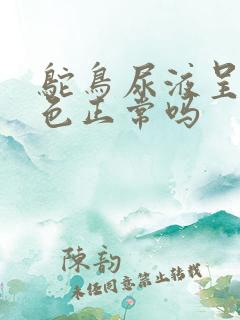 鸵鸟尿液呈
色正常吗
陳韵
未经同意禁止转载